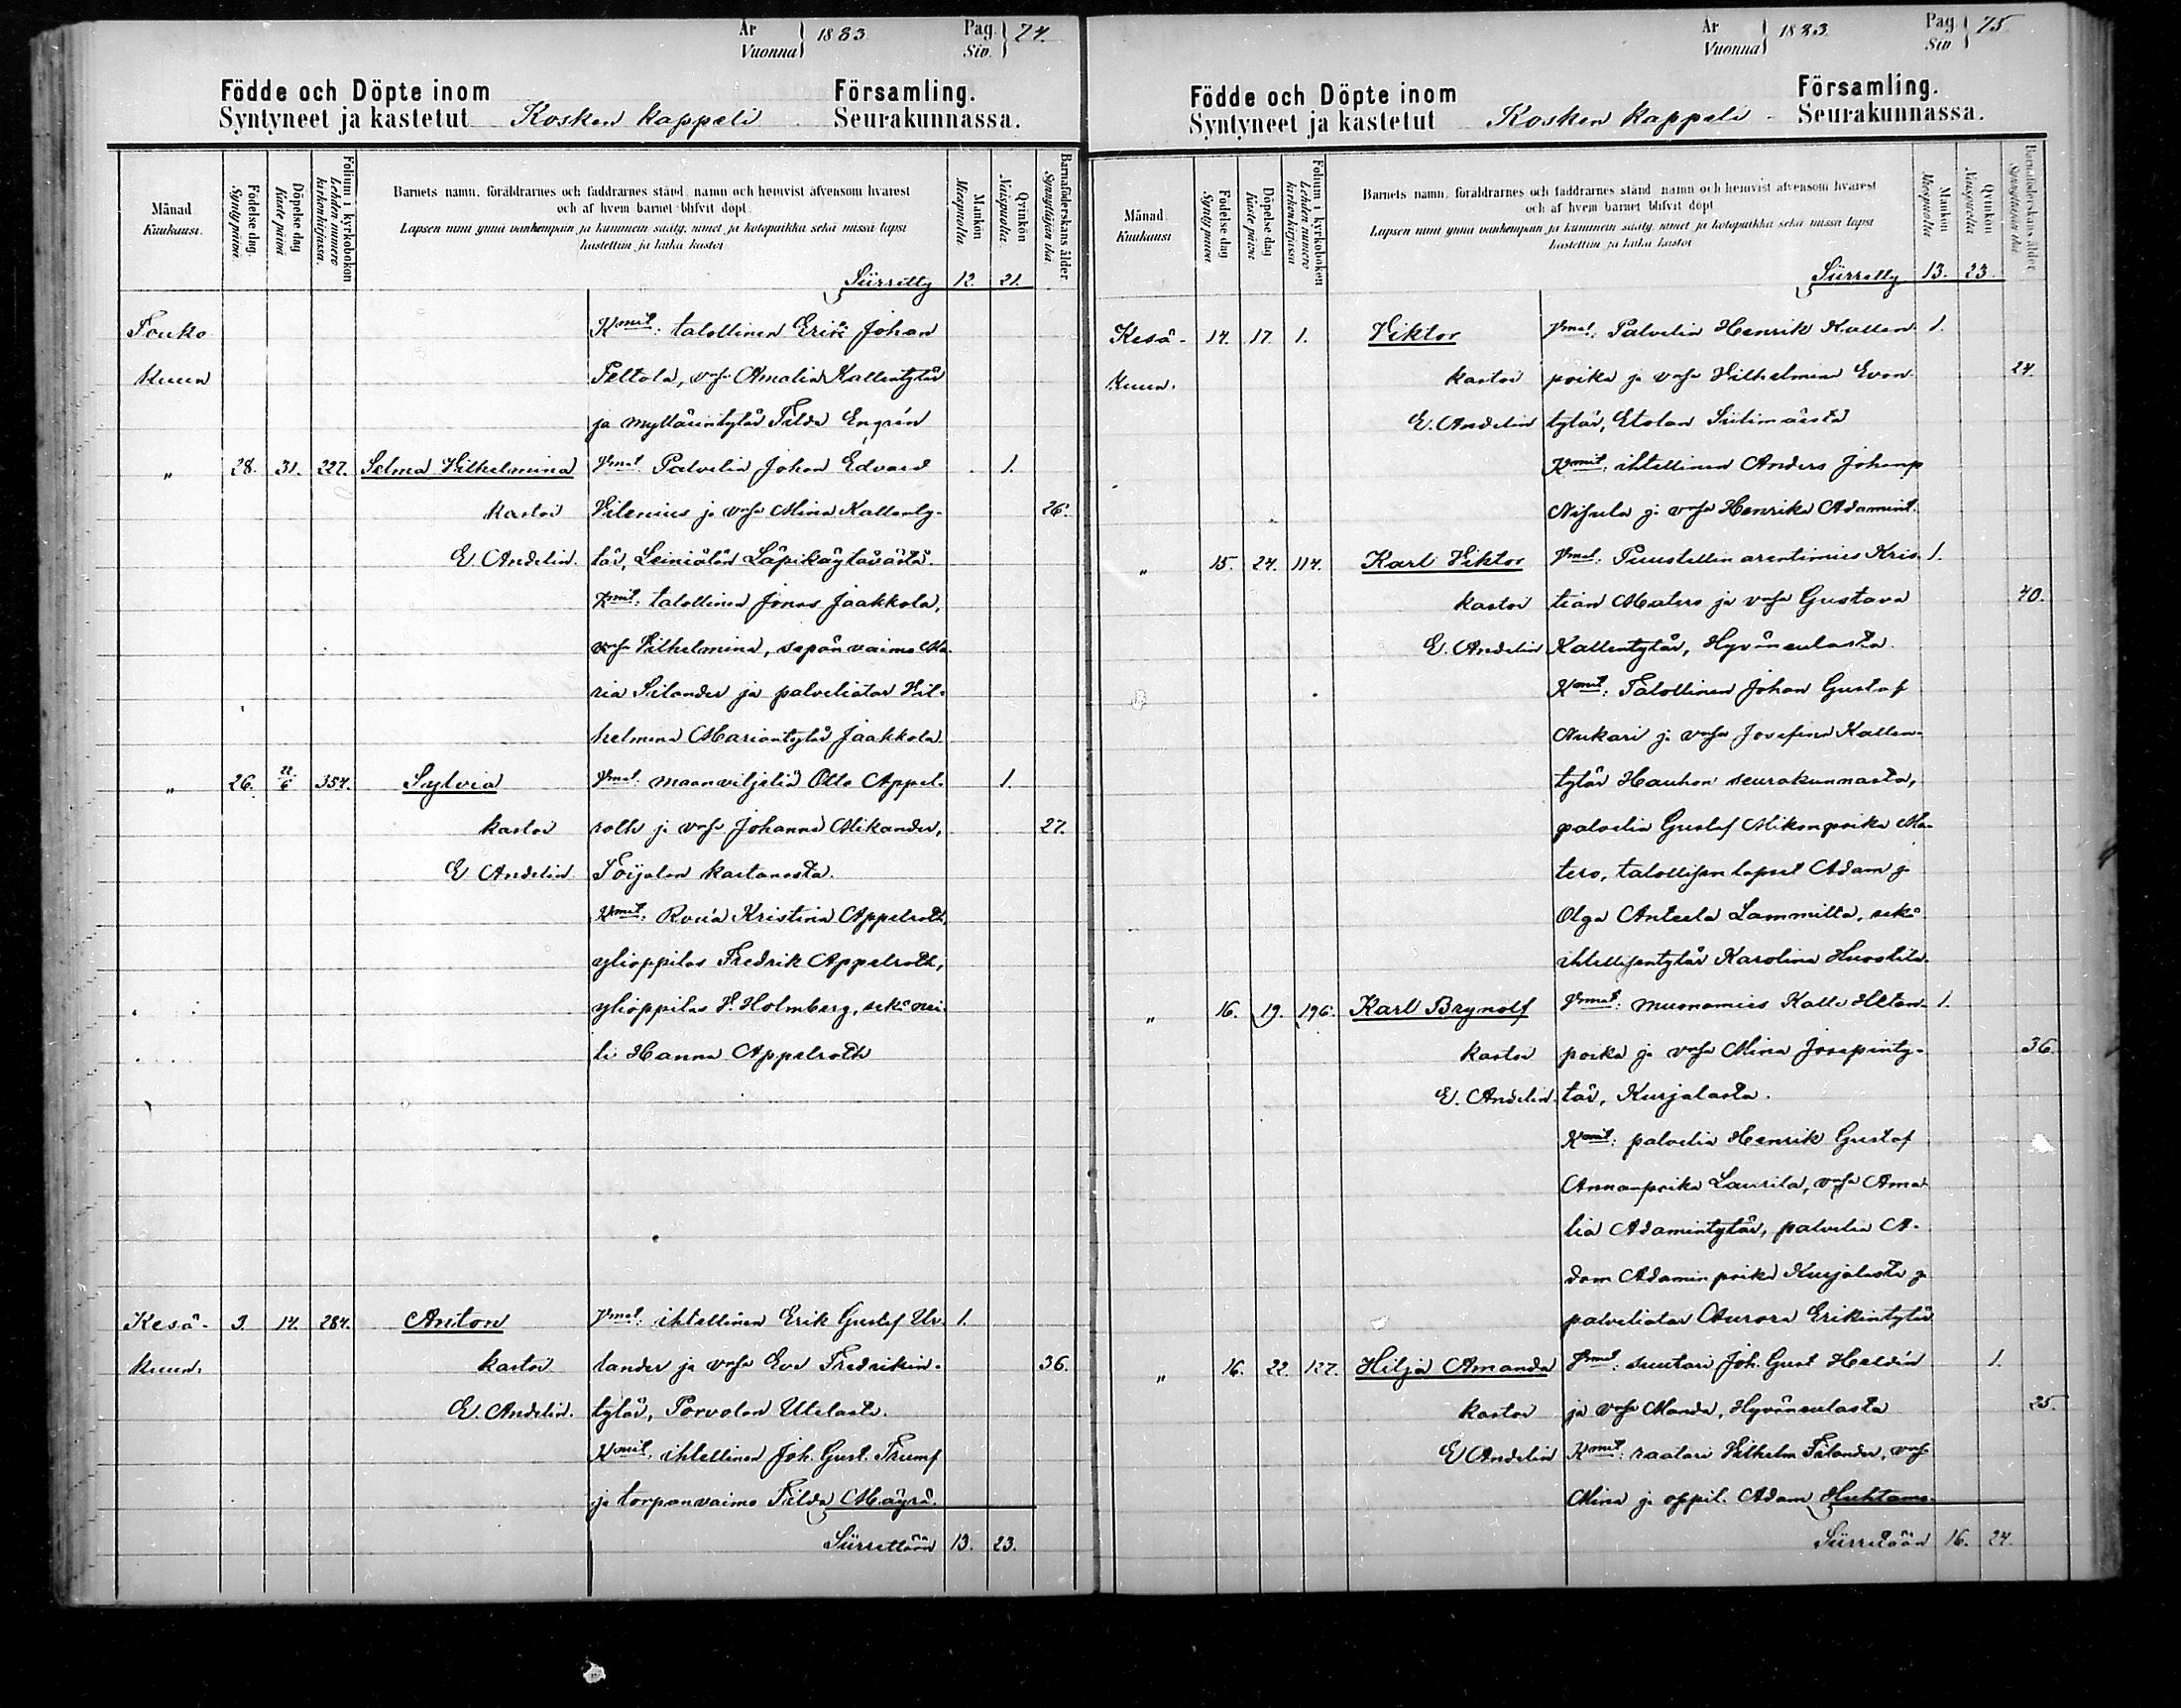 År
Vuonna } 1883
Pag.
Siv. } 74.
Födde och Döpte inom Församling.
Syntyneet ja kastetut Kosken kappeli Seurakunnassa.
Månad
Kuukausi.
Födelse dag.
Synty päivä.
Döpelse dag
Kaste päivä
Folium i kyrkoboken
Lehden numero kirkonkirjassa.
Barnets namn, föräldrarnes och faddrarnes stånd, namn och hemvist äfvensom hvarest
och af hvem barnet blifvit döpt.
Lapsen nimi ynnä vanhempain ja kummein sääty, nimet ja kotopaikka sekä missä lapsi
kastettiin ja kuka kastoi
Mankön
Miespuolia
Qvinkön
Naispuolia.
Barnaföderskans ålder.
Synnyttäjän ikä
Siirretty 12. 21.
Touko Kmit: talollinen Erik Johan
kuun Peltola, vmsa Amalia Kallentytär
ja myllärintytär Tilda Engrén
" 28. 31. 227. Selma Vilhelmina Vmat Palvelia Johan Edvard 1.
kastoi Vilenius ja vmsa Mina Kallenty- 26.
E Andelin. tär, Leiniälän Läpikäytävästä.
Kmit: talollinen Jonas Jaakkola,
vmsa Vilhelmina, sepän vaimo Ma-
ria Silander ja palveliatar Vil-
helmina Mariantytär Jaakkola.
" 26. 22/6 354. Sylvia Vmat maanviljeliä Otto Appel- 1.
kastoi roth ja vmsa Johanna Mikander, 27.
E Andelin Toijalan kartanosta.
Kmit: Rouva Kristina Appelroth,
ylioppilas Fredrik Appelroth,
ylioppilas V. Holmberg, sekä nei-
ti Hanna Appelroth
Kesä- 3. 14. 284. Anton Vmat: ihtellinen Erik Gustaf Ur- 1.
kuun. kastoi lander ja vmsa Eva Fredrikin- 36.
E. Andelin. tytär, Porvolan Utelasta.
Kmit. ihtellinen Joh. Gust. Trumf
ja torpanvaimo Tilda Mäyrä.
Siirrettään 13. 23.
År
Vuonna } 1883.
Pag
Siv } 75
Födde och Döpte inom Församling.
Syntyneet ja kastetut Kosken kappeli Seurakunnassa.
Månad
Kuukausi
Födelse dag
Synty päivä
Döpelse dag
Kaste päivä
Folium i kyrkoboken
Lehden numero kirkonkirjassa
Barnets namn, föräldrarnes och faddrarnes stånd namn och hemvist äfvensom hvarest
och af hvem barnet blifvit döpt
Lapsen nimi ynnä vanhempain ja kummein sääty, nimet ja kotopaikka sekä missä lapsi
kastettiin ja kuka kastoi
Mankön
Miespuolia
Qvinkön
Naispuolia
Barnaföderskans ålder
Synnyttäjän ikä
Siirretty 13. 23.
Kesä- 14. 17. 1. Viktor Vmat: Palvelia Henrik Kallen- 1.
kuun. kastoi poika ja vmsa Vilhelmina Evan- 24.
E. Andelin tytär, Etolan Siilimäestä
Kmit: ihtellinen Anders Johanp
Nisula ja vmsa Henrika Adamint.
" 15. 24. 114. Karl Viktor Vmat: Puustellin arentimies Kris- 1.
kastoi tian Matero ja vmsa Gustava 40.
E. Andelin Kallentytär, Hyväneulasta.
Kmit: Talollinen Johan Gustaf
Nukari ja vmsa Josefina Kallen-
tytär Hauhon seurakunnasta,
palvelia Gustaf Mikonpoika Ma-
tero, talollisen lapset Adam ja
Olga Anteela Lammilta, sekä
ihtellisentytär Karolina Huostila.
" 16. 19. 196. Karl Brynolf Vmat: muonamies Kalle Heton- 1.
kastoi poika ja vmsa Mina Josepinty- 36.
E. Andelin. tär, Kurjalasta.
Kmit: palvelia Henrik Gustaf
Annanpoika Laurila, vmsa Ama-
lia Adamintytär, palvelia A-
dam Adamin poika Kurjalasta ja
palveliatar Aurora Erikintytär
" 16. 22. 127. Hilja Amanda Vmat: suutari Joh. Gust Heldén 1.
kastoi ja vmsa Manda, Hyväneulasta 25.
E Andelin Kmit: raatari Vilhelm Tilander, vmsa
Mina ja oppil. Adam Huhtamo.
Siirretään 16. 24.